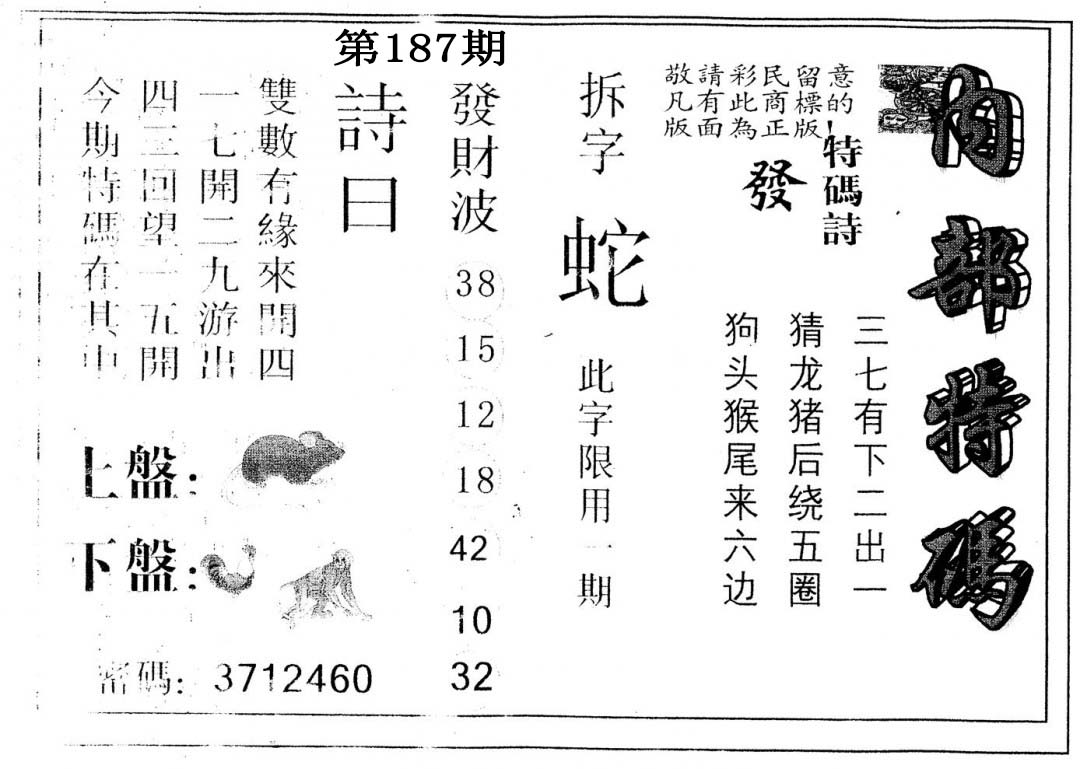 第187期
內部特碼
敬請彩民留意
凡有此商標的
版面為正版!
特碼詩
發
三七有下二出一
猜龙猪后绕五圈
狗头猴尾来六边
拆字
蛇
此字限用一期
發財波
38
15
12
18
42
10
32
詩曰
雙數有緣來開四
一七開二九游出
四三回望一五開
今期特碼在其中
上盤:
下盤:
密碼: 3712460